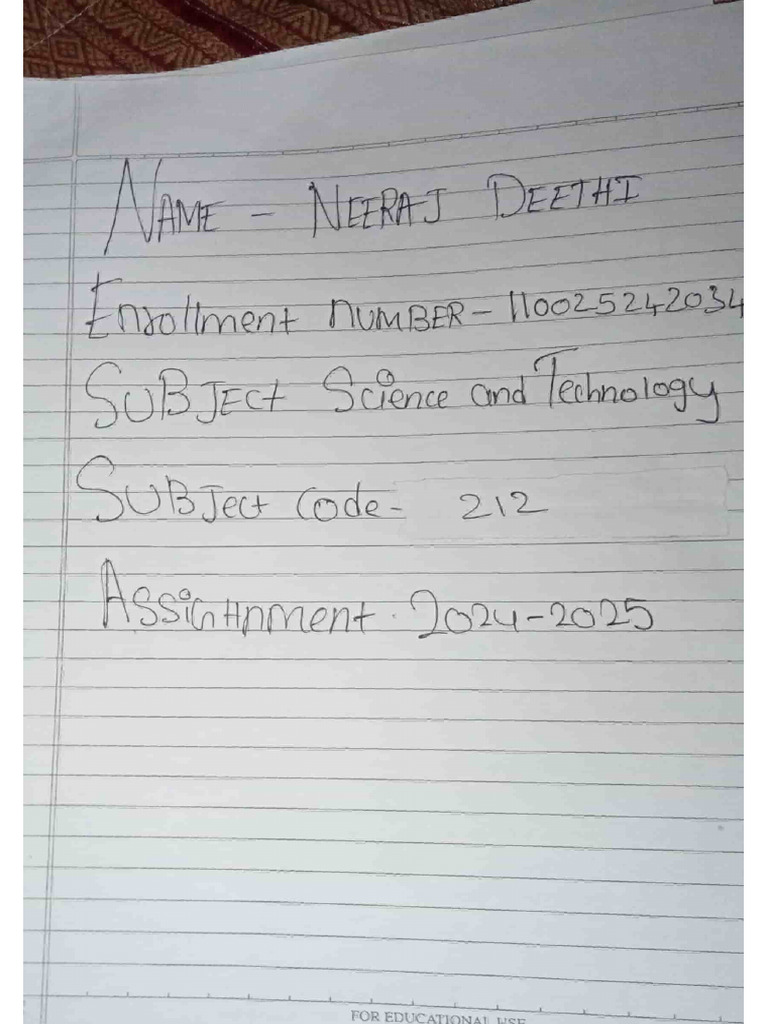 NAME - NEERAJ DEETHI
Enrollment NUMBER - 110025242034
SUBJECT Science and Technology
SUBJect Code - 212
Assigthnment . 2024-2025
FOR EDUCATIONAL USE